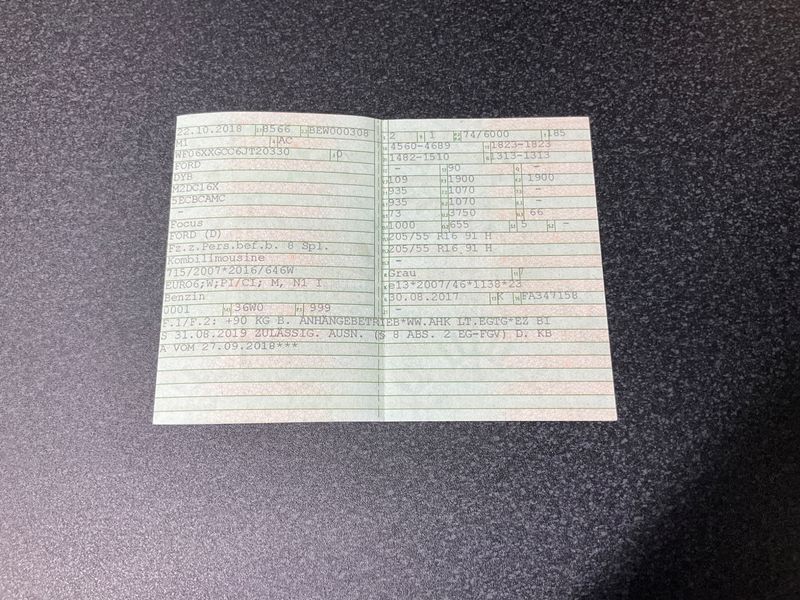 22.10.2018 8566 BEW000308
M1 AC
WF06XXGCC6JT20330 0
FORD
DYB
M2DC16X
5ECBCAMC
-
Focus
FORD (D)
Fz.z.Pers.bef.b. 8 Spl.
Kombilimousine
715/2007*2016/646W
EURO6;W;PI/CI; M, N1 I
Benzin
0001 36W0 999
2 1 74/6000 185
4560-4689 1823-1823
1482-1510 1313-1313
- 90 -
109 1900 1900
935 1070 -
935 1070 -
73 3750 66
1000 655 5 -
205/55 R16 91 H
205/55 R16 91 H
-
Grau /
e13*2007/46*1138*23
30.08.2017 K FA347158
-
F.1/F.2: +90 KG B. ANHÄNGEBETRIEB*WW.AHK LT.EGTG*EZ BI
S 31.08.2019 ZULÄSSIG. AUSN. (§ 8 ABS. 2 EG-FGV) D. KB
A VOM 27.09.2018***